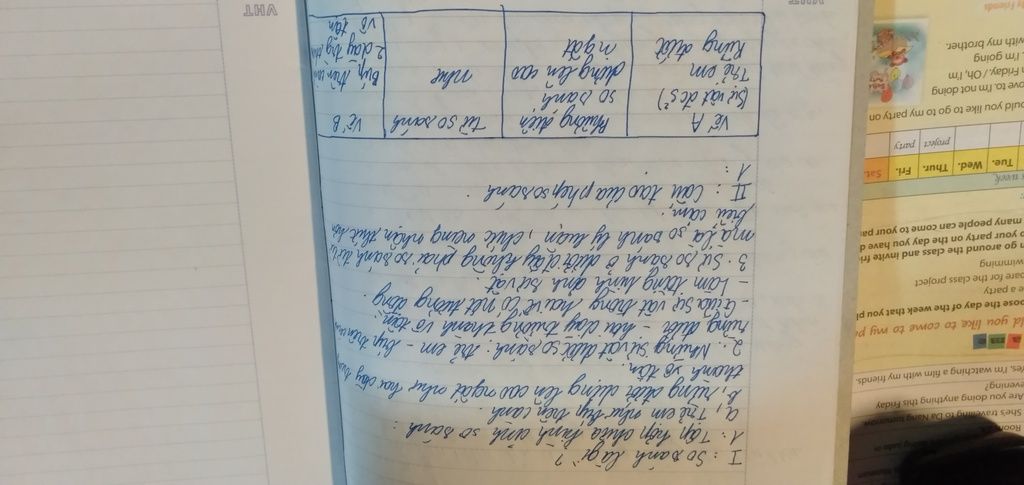 I: So sánh là gì?
1. Tập hợp chứa hình ảnh so sánh:
a, Trẻ em như búp trên cành.
b, rừng đước dựng lên cao ngất như hai dãy trường
thành vô tận.
2. Những sự vật được so sánh: trẻ em - búp trên cành
rừng đước - hai dãy trường thành vô tận.
- Giữa sự vật trong hai vế có nét tương đồng.
- Làm tăng hình ảnh sự vật.
3. Sự so sánh ở dưới đây không phải so sánh
mà là so sánh lý luận, chức năng nhận thức
biểu cảm;
II: Cấu tạo của phép so sánh.
1:
Vế A
(Sự vật đc s²)
Phương diện
so sánh
Từ so sánh
Vế B
Trẻ em
Rừng đước
dựng lên cao
ngất
như
Búp trên cành
2 dãy
vô tận
VHT
my friends
with my brother.
I'm going
Friday. / Oh, I'm
love to. I'm not doing
you like to go to my party on
project
party
Tue. Wed. Thur. Fri. Sat.
week
many people can come to your
your party on the day you have
go around the class and invite
swimming
for the class project
a party
the day of the week that you
you like to come to my
Yes. I'm watching a film with my friends.
evening?
Are you doing anything this Friday
She's travelling to Da Nang tomorrow